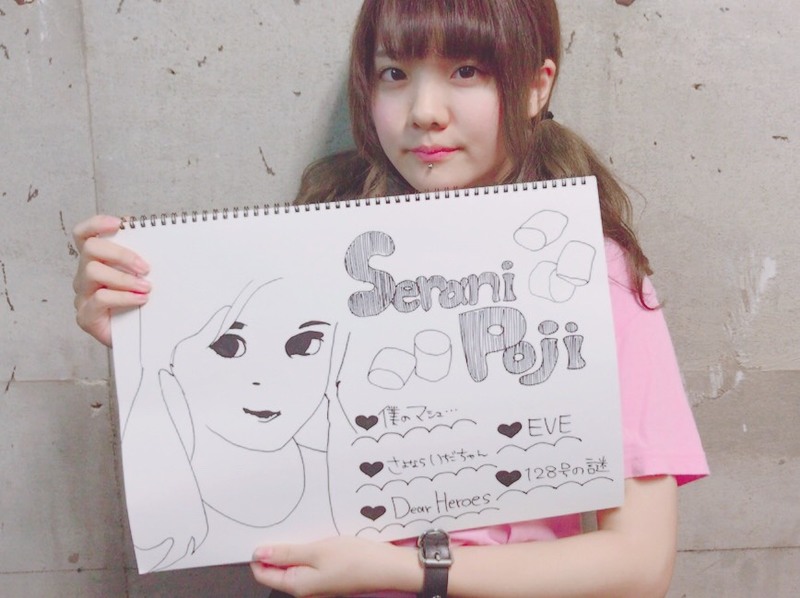 Serani
Poji
僕のマシュ…
さよならいだちゃん
Dear Heroes
EVE
128号の謎